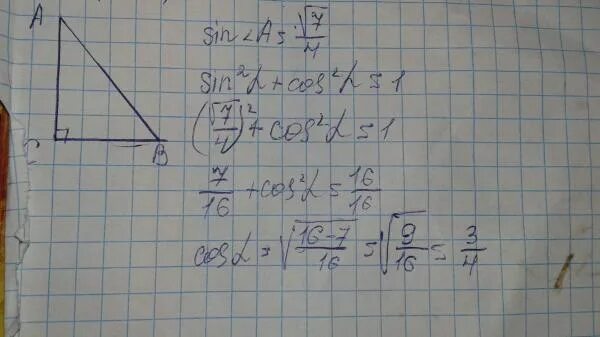 A
C
B
sin∠A = √7/4
sin²α + cos²α = 1
(√7/4)² + cos²α = 1
7/16 + cos²α = 16/16
cosα = √(16-7/16) = √(9/16) = 3/4